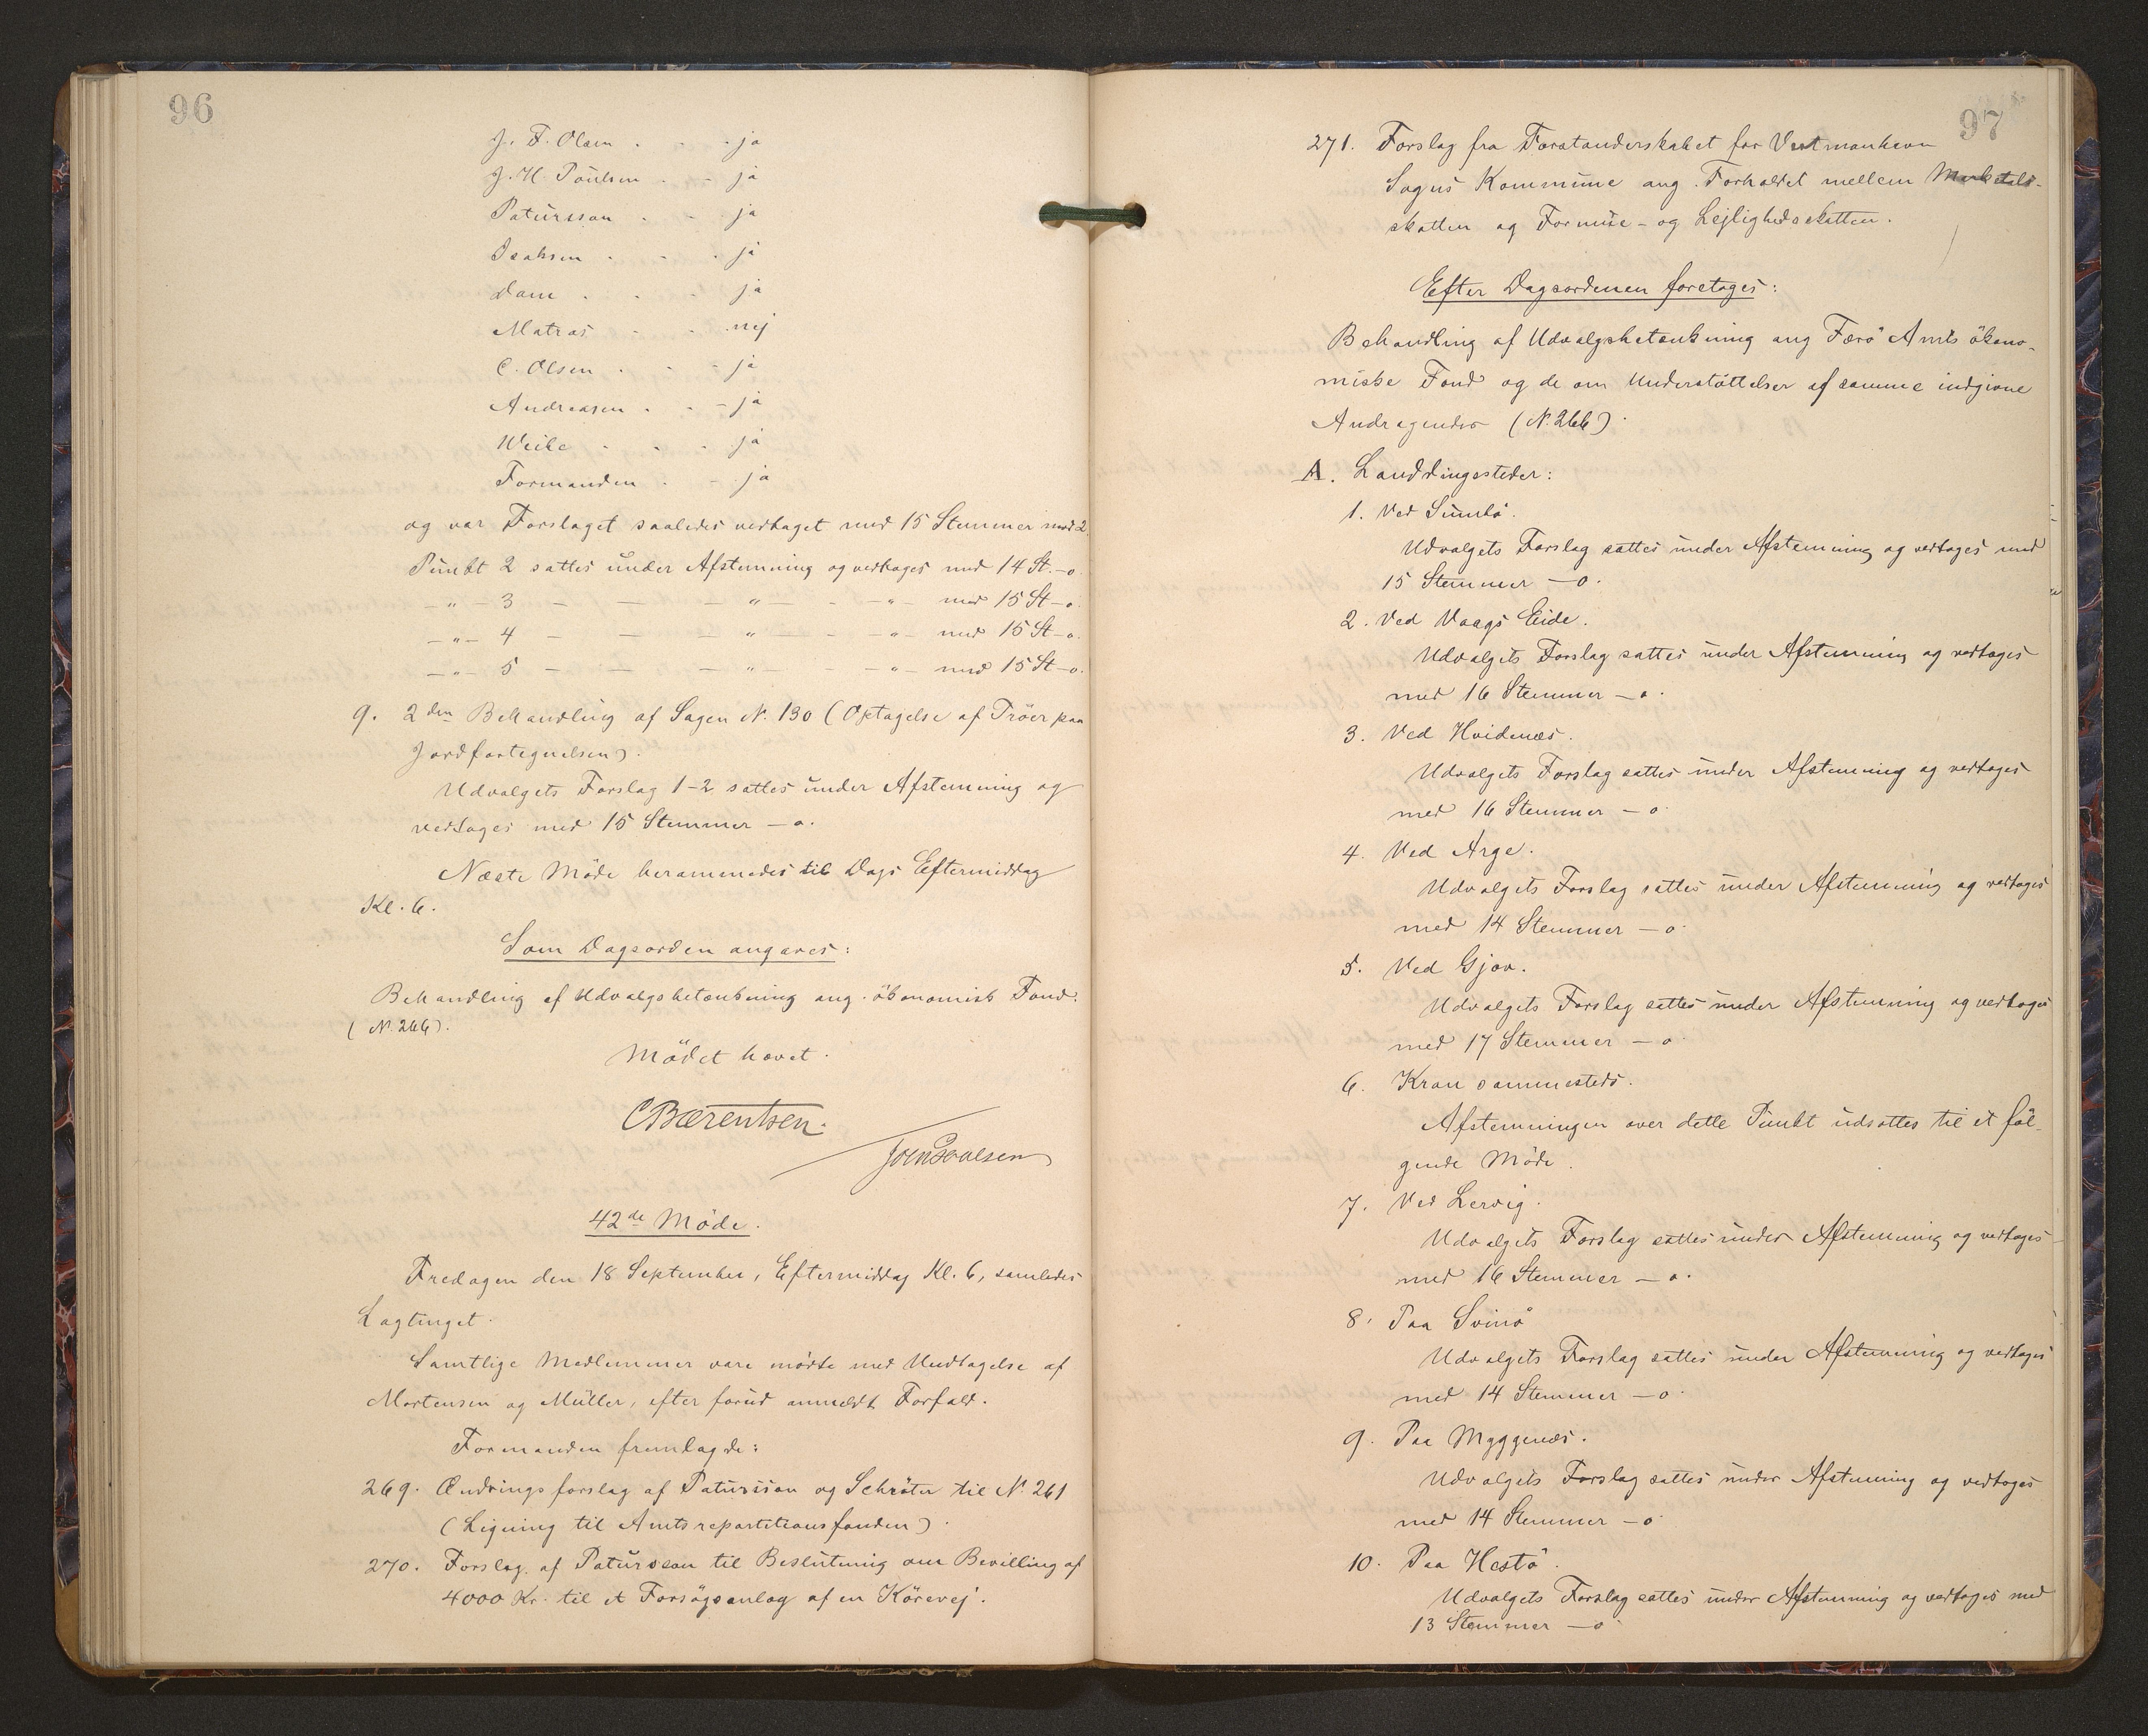 96
J. F. Olsen . - . ja
J. H. Poulsen . - ja
Patursson . - ja
Isaksen . - . ja
Dam . . - ja
Matras - - nej
C. Olsen . - - ja
Andreasen . - - ja
Weihe - - . ja
Formanden . - ja
og var Forslaget saaledes vedtaget med 15 Stemmer mod 2.
Punkt 2 sattes under Afstemning og vedtoges med 14 St. - o.
- " - 3 - — - " - - - " - med 15 St - o.
- " - 4 - — - " - - - " - med 15 St - o.
- " - 5 - — - " - - - " - med 15 St - o.
9. 2den Behandling af Sagen N. 130 (Optagelse af Tröer paa
Jordfortegnelsen).
Udvalgets Forslag 1-2 sattes under Afstemning og
vedtoges med 15 Stemmer - o.
Næste Möde berammedes til Dags Eftermiddag
Kl. 6.
Som Dagsorden angaves:
Behandling af Udvalgsbetænkning ang. ökonomisk Fond.
(N. 266).
Mödet hævet.
CBærentsen.
42de Möde.
Fredagen den 18 September, Eftermiddag Kl. 6, samledes
Lagtinget.
Samtlige Medlemmer vare mödte med Undtagelse af
Mortensen og Müller, efter forud anmeldt Forfald.
Formanden fremlagde:
269. Ændringsforslag af Patursson og Schröter til N. 261
(Ligning til Amtsrepartitionsfonden).
270. Forslag af Patursson til Beslutning om Bevilling af
4000 Kr. til et Forsögsanlæg af en Körevej.
97
271. Forslag fra Forstanderskabet for Vestmanhavn
Sogns Kommune ang. Forholdet mellem
skatten og Formue- og Lejlighedsskatten.
Efter Dagsordenen foretoges:
Behandling af Udvalgsbetænkning ang Færö Amts ökono-
miske Fond og de om Understöttelser af samme indgivne
Andragender (N. 266).
A. Landdingssteder:
1. Ved Sumbö.
Udvalgets Forslag sattes under Afstemning og vedtoges med
15 Stemmer - o.
2. Ved Vaags Eide.
Udvalgets Forslag sattes under Afstemning og vedtoges
med 16 Stemmer - o.
3. Ved Hvidenæs.
Udvalgets Forslag sattes under Afstemning og vedtoges
med 16 Stemmer - o.
4. Ved Arge.
Udvalgets Forslag sattes under Afstemning og vedtoges
med 14 Stemmer - o.
5. Ved Gjov.
Udvalgets Forslag sattes under Afstemning og vedtoges
med 17 Stemmer - o.
6. Kran sammesteds.
Afstemningen over dette Punkt udsattes til et föl-
gende Möde.
7. Ved Lervig.
Udvalgets Forslag sattes under Afstemning og vedtoges
med 16 Stemmer - o.
8. Paa Svinö
Udvalgets Forslag sattes under Afstemning og vedtoges
med 14 Stemmer - o.
9. Paa Myggenæs.
Udvalgets Forslag sattes under Afstemning og vedtoges
med 14 Stemmer - o.
10. Paa Hestö.
Udvalgets Forslag sattes under Afstemning og vedtoges med
13 Stemmer - o